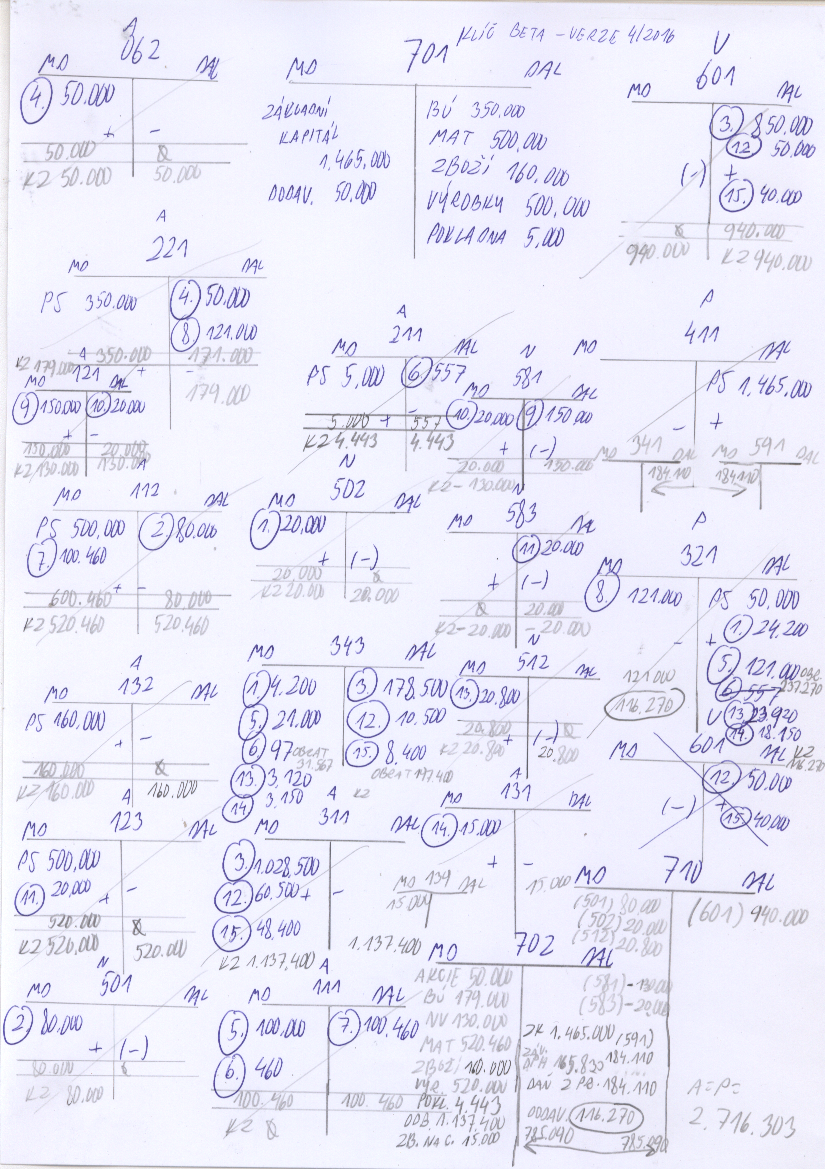 KLÍČ BETA - VERZE 4/2016
A
062
MD DAL
4. 50.000
+ -
50.000 0
KZ 50.000 50.000
701
MD DAL
ZÁKLADNÍ
KAPITÁL
1.465,000
DODAV. 50.000
BÚ 350.000
MAT 500,000
ZBOŽÍ 160,000
VÝROBKY 500,000
POKLADNA 5,000
V
601
MD DAL
3. 850,000
12. 50,000
(-) +
15. 40.000
0 940.000
940.000 KZ 940.000
A
221
MD DAL
PS 350.000 4. 50.000
8. 121.000
A 350.000 171.000
KZ 179.000 + -
179.000
121
MD DAL
9. 150.000 10. 20.000
+ -
150.000 20.000
KZ 130.000 130.000
A
211
MD DAL
PS 5,000 6. 557
5.000 + - 557
KZ 4.443 4.443
N
581
MD DAL
10. 20.000 9. 150.000
+ (-)
20.000 150.000
KZ - 130.000
P
411
MD DAL
PS 1,465.000
- +
MD 341 DAL
184.110
MD 591 DAL
184.110
A
112
MD DAL
PS 500,000 2. 80.000
7. 100.460
+ -
600.460 80.000
KZ 520.460 520.460
N
502
MD DAL
1. 20,000
+ (-)
20.000 0
KZ 20.000 20.000
N
583
MD DAL
11. 20.000
+ (-)
0 20.000
KZ - 20.000 - 20.000
P
321
MD DAL
8. 121.000 PS 50,000
1. 24.200
- +
5. 121.000
6. 557
121.000 237.270
116.270
13. 23.920
14. 18.150
KZ
116.270
A
132
MD DAL
PS 160,000
+ -
160.000 0
KZ 160.000 160.000
343
MD DAL
1. 4.200 3. 178.500
5. 21.000 12. 10.500
6. 97 15. 8.400
OBRAT 31.567 OBRAT 197.400
13. 3,120 KZ
14. 3,150
N
512
MD DAL
13. 20,800
+ (-)
20.800 0
KZ 20.800 20.800
V
601
MD DAL
12. 50.000
(-) +
15. 40,000
A
123
MD DAL
PS 500,000
11. 20,000
+ -
520.000 0
KZ 520,000 520.000
A
311
MD DAL
3. 1.028,500
12. 60,500 + -
15. 48.400
KZ 1.137,400 1.137.400
A
131
MD DAL
14. 15.000
+ -
15.000
MD 139 DAL
15.000
710
MD DAL
(501) 80.000
(502) 20.000
(512) 20.800
(601) 940.000
(581) - 130.000
(583) - 20.000
(591)
184.110
785.090 785.090
N
501
MD DAL
2. 80.000
+ (-)
80.000 0
KZ 80.000
A
111
MD DAL
5. 100.000 7. 100.460
6. 460
100.460 100.460
KZ 0
702
MD DAL
AKCIE 50.000
BÚ 179.000
NV 130.000
MAT 520.460
ZBOŽÍ 160.000
VÝR. 520.000
POKL 4.443
ODB 1.137.400
ZB. NA C. 15.000
ZK 1.465.000
ZÁV. DPH 165.833
DAŇ Z PŘ. 184.110
DODAV. 116.270
A=P=
2.716.303